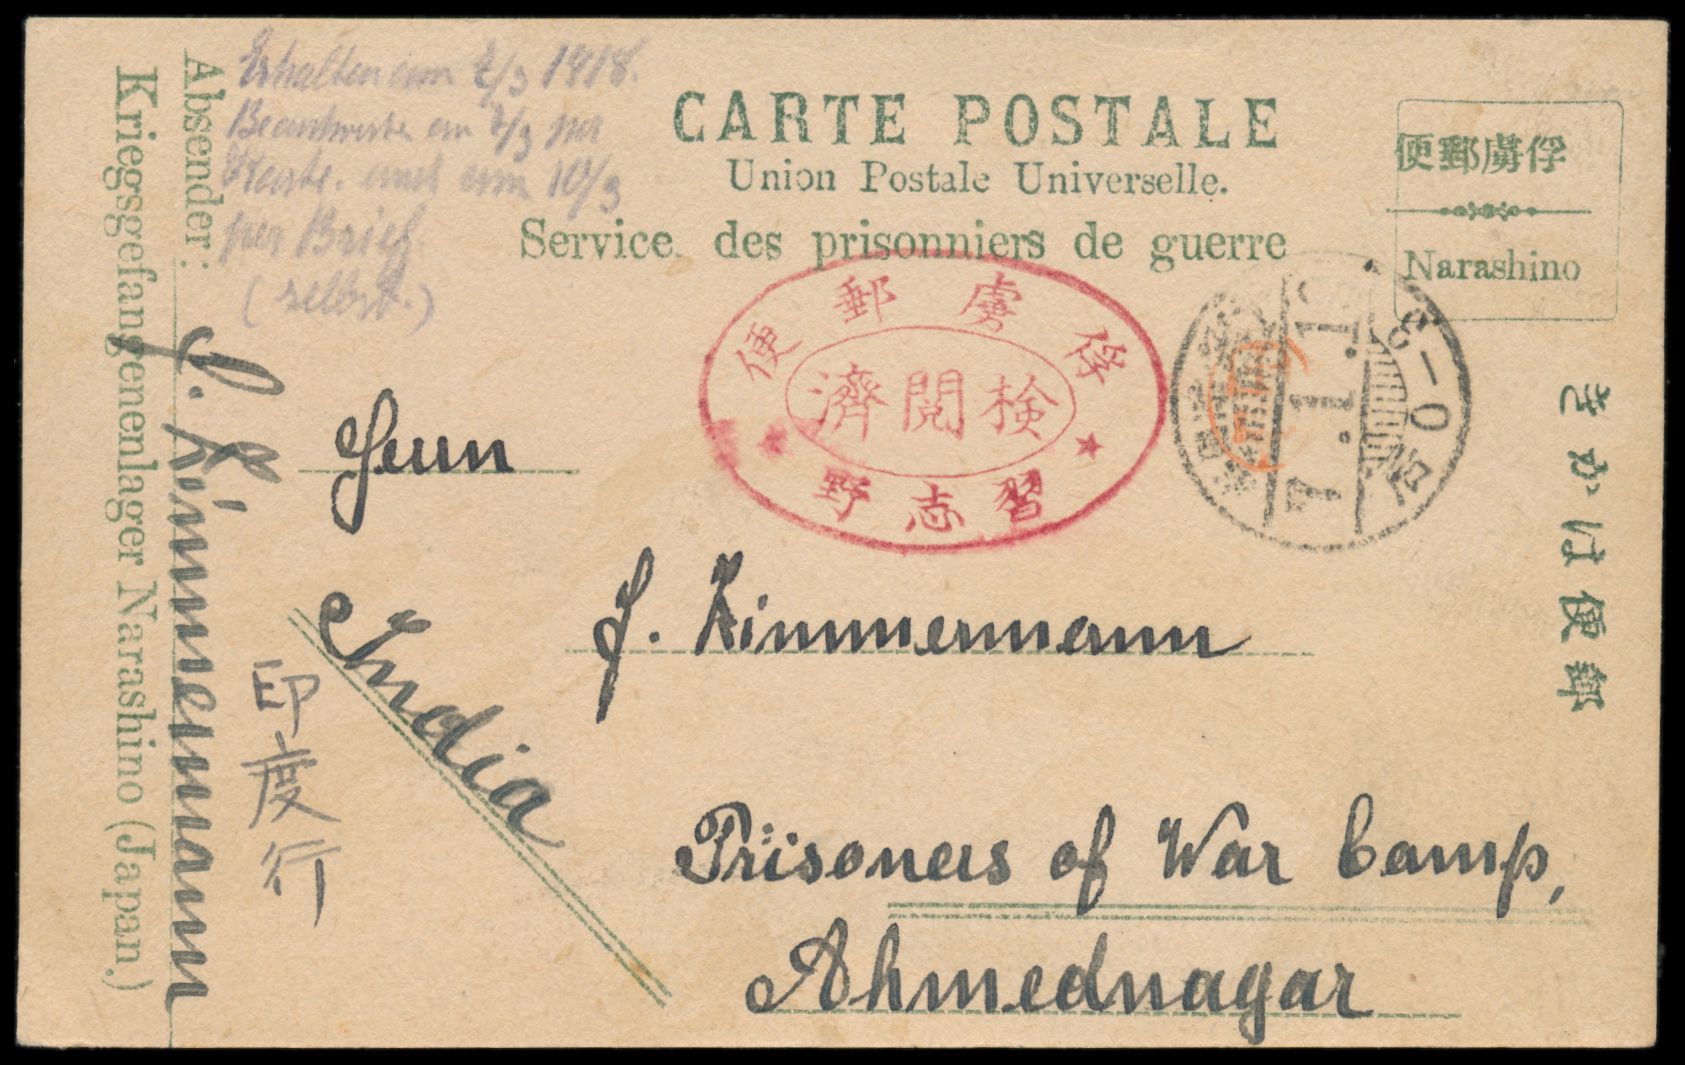 CARTE POSTALE
Union Postale Universelle.
Service des prisonniers de guerre
便郵虜俘
Narashino
きかは便郵
便郵虜俘
済閲検
野志習
Absender:
Kriegsgefangenenlager Narashino (Japan.)
Zimmermann
Erhalten am 2/3 1918.
am 2/3 per
Karte. und am 10/3
per Brief.
(selbst.)
Herrn
J. Zimmermann
India
印度行
Prisoners of War Camp,
Ahmednagar
7.1.1
0-3